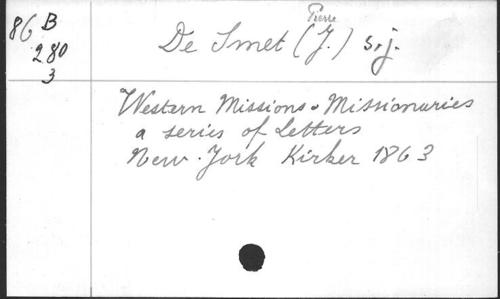 86 B
280
3
Pierre
De Smet (J.) s.j.
Western Missions & Missionaries
a series of Letters
New-York Kirker 1863